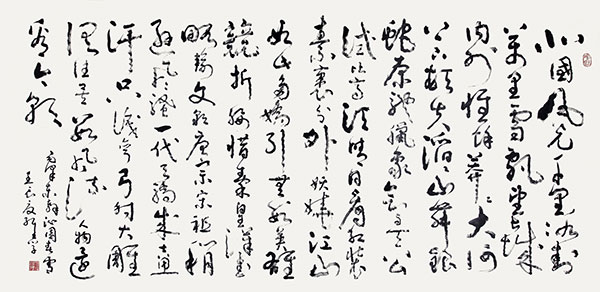 北國風光千里冰封
萬里雪飄望長城
內外惟餘莽莽大河
上下頓失滔滔山舞銀
蛇原馳蠟象欲與天公
試比高須晴日看紅裝
素裹分外妖嬈江山
如此多嬌引無數英雄
競折腰惜秦皇漢武
略輸文采唐宗宋祖稍
遜風騷一代天驕成吉思
汗只識彎弓射大雕
俱往矣數風流人物還
看今朝
毛澤東詞沁園春雪